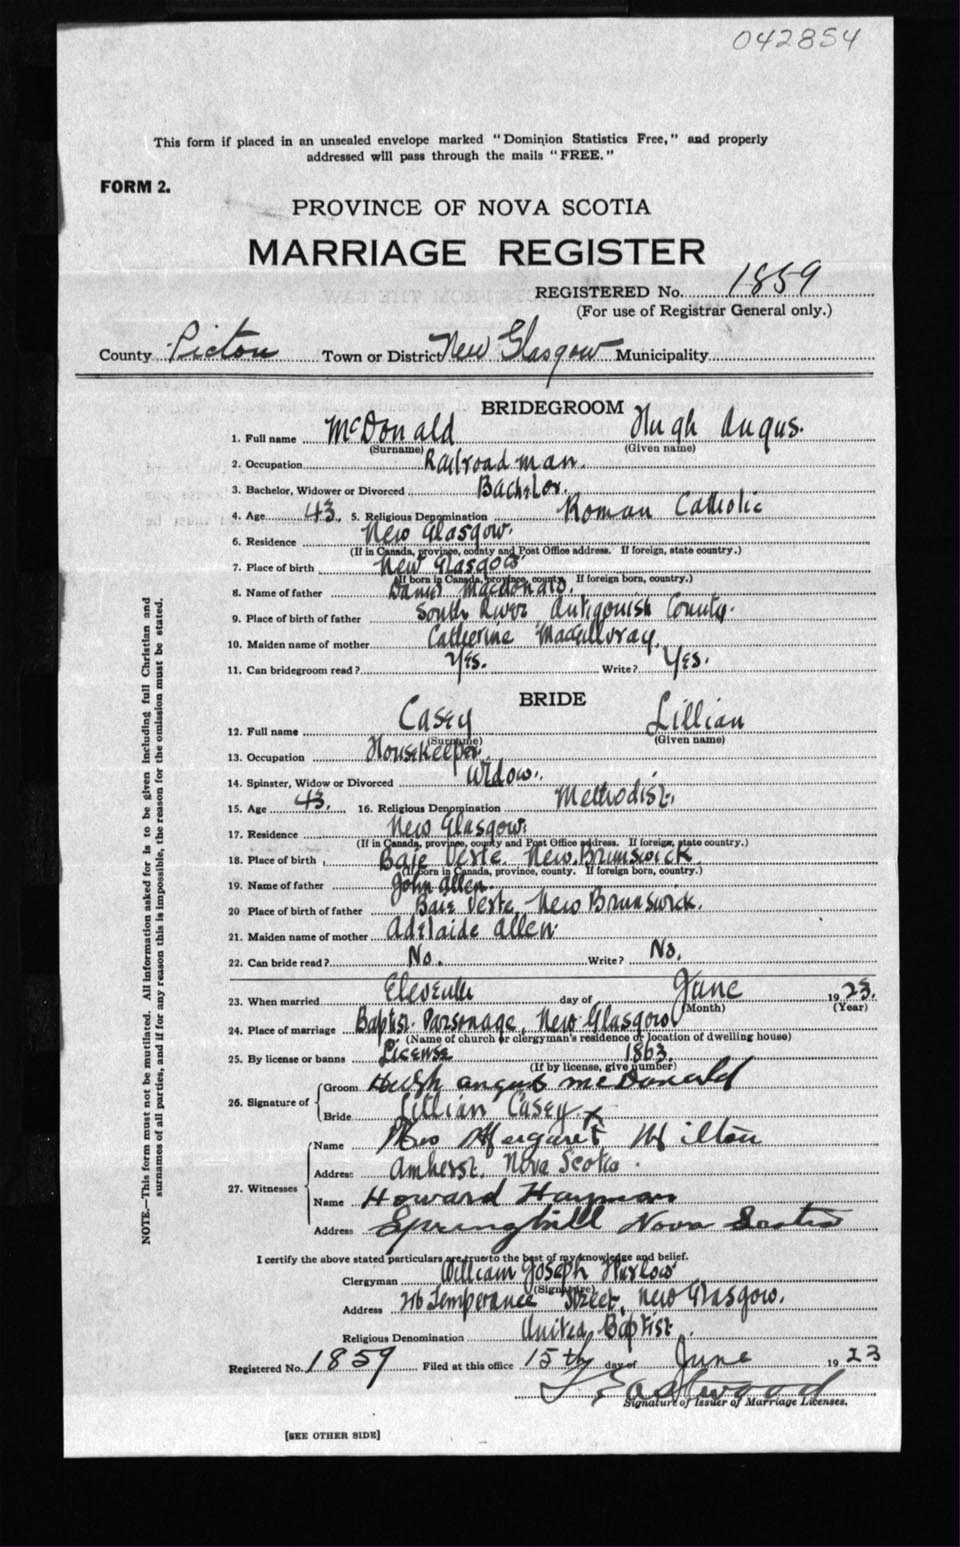 042854
This form if placed in an unsealed envelope marked "Dominion Statistics Free," and properly
addressed will pass through the mails "FREE."
FORM 2.
PROVINCE OF NOVA SCOTIA
MARRIAGE REGISTER
REGISTERED No. 1859
(For use of Registrar General only.)
County Pictou Town or District New Glasgow Municipality
BRIDEGROOM
1. Full name McDonald Hugh Angus.
(Surname) (Given name)
2. Occupation Railroad man.
3. Bachelor, Widower or Divorced Bachelor.
4. Age 43. 5. Religious Denomination Roman Catholic
6. Residence New Glasgow.
(If in Canada, province, county and Post Office address. If foreign, state country.)
7. Place of birth New Glasgow
(If born in Canada, province, county. If foreign born, country.)
8. Name of father Daniel MacDonald.
9. Place of birth of father South River Antigonish County.
10. Maiden name of mother Catherine MacGillvray.
11. Can bridegroom read? Yes. Write? Yes.
BRIDE
12. Full name Casey Lillian
(Surname) (Given name)
13. Occupation Housekeeper.
14. Spinster, Widow or Divorced Widow.
15. Age 43. 16. Religious Denomination Methodist.
17. Residence New Glasgow.
(If in Canada, province, county and Post Office address. If foreign, state country.)
18. Place of birth Baie Verte. New Brunswick
(If born in Canada, province, county. If foreign born, country.)
19. Name of father John Allen.
20 Place of birth of father Baie Verte, New Brunswick.
21. Maiden name of mother Adelaide Allen
22. Can bride read? No. Write? No.
23. When married Eleventh day of June 1923.
(Month) (Year)
24. Place of marriage Baptist Parsonage, New Glasgow
(Name of church or clergyman's residence or location of dwelling house)
25. By license or banns License 1863.
(If by license, give number)
26. Signature of Groom Hugh angus mcDonald
Bride Lillian Casey x
27. Witnesses Name Mrs Margaret Hilton
Address Amherst, Nova Scotia.
Name Howard Hayman
Address Springhill Nova Scotia
I certify the above stated particulars are true to the best of my knowledge and belief.
Clergyman William Joseph
(Signature)
Address 216 Temperance Street, New Glasgow.
Religious Denomination United Baptist.
Registered No. 1859 Filed at this office 15th day of June 1923
Eastwood
Signature of Issuer of Marriage Licenses.
[SEE OTHER SIDE]
NOTE.—This form must not be mutilated. All information asked for is to be given including full Christian and
surnames of all parties, and if for any reason this is impossible, the reason for the omission must be stated.